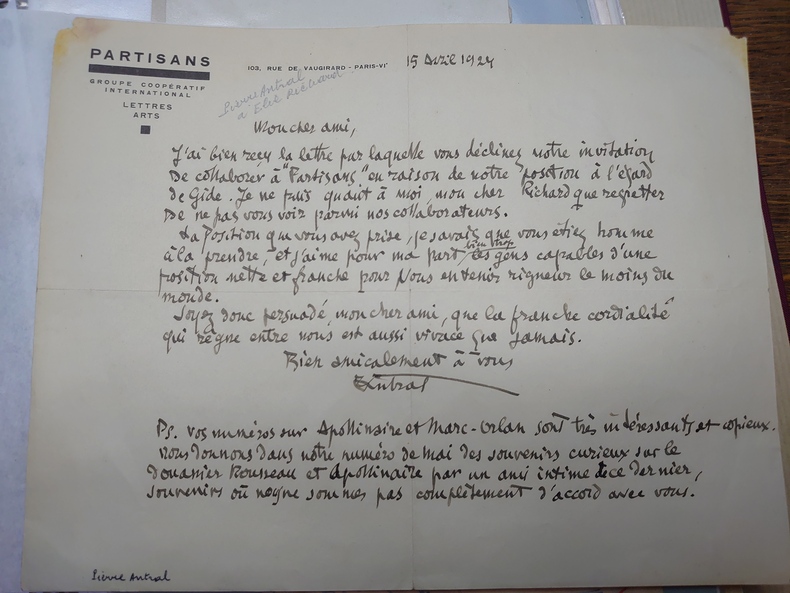 PARTISANS
GROUPE COOPÉRATIF
INTERNATIONAL
LETTRES
ARTS
103, RUE DE VAUGIRARD - PARIS-VIe
15 Avril 1924
Pierre Antral
à Elie Richard
Mon cher ami,
J'ai bien reçu la lettre par laquelle vous déclinez notre invitation
de collaborer à "Partisans" en raison de notre position à l'égard
de Gide. Je ne puis quant à moi, mon cher Richard que regretter
de ne pas vous voir parmi nos collaborateurs.
La position que vous avez prise, je savais que vous étiez homme
à la prendre, et j'aime pour ma part bien trop les gens capables d'une
position nette et franche pour vous en tenir rigueur le moins du
monde.
Soyez donc persuadé, mon cher ami, que la franche cordialité
qui règne entre nous est aussi vivace que jamais.
Bien amicalement à vous
Antral
Ps. vos numéros sur Apollinaire et Marc-Orlan sont très intéressants et copieux.
Nous donnons dans notre numéro de mai des souvenirs curieux sur le
douanier Rousseau et Apollinaire par un ami intime de ce dernier,
souvenirs où nous ne sommes pas complètement d'accord avec vous.
Pierre Antral